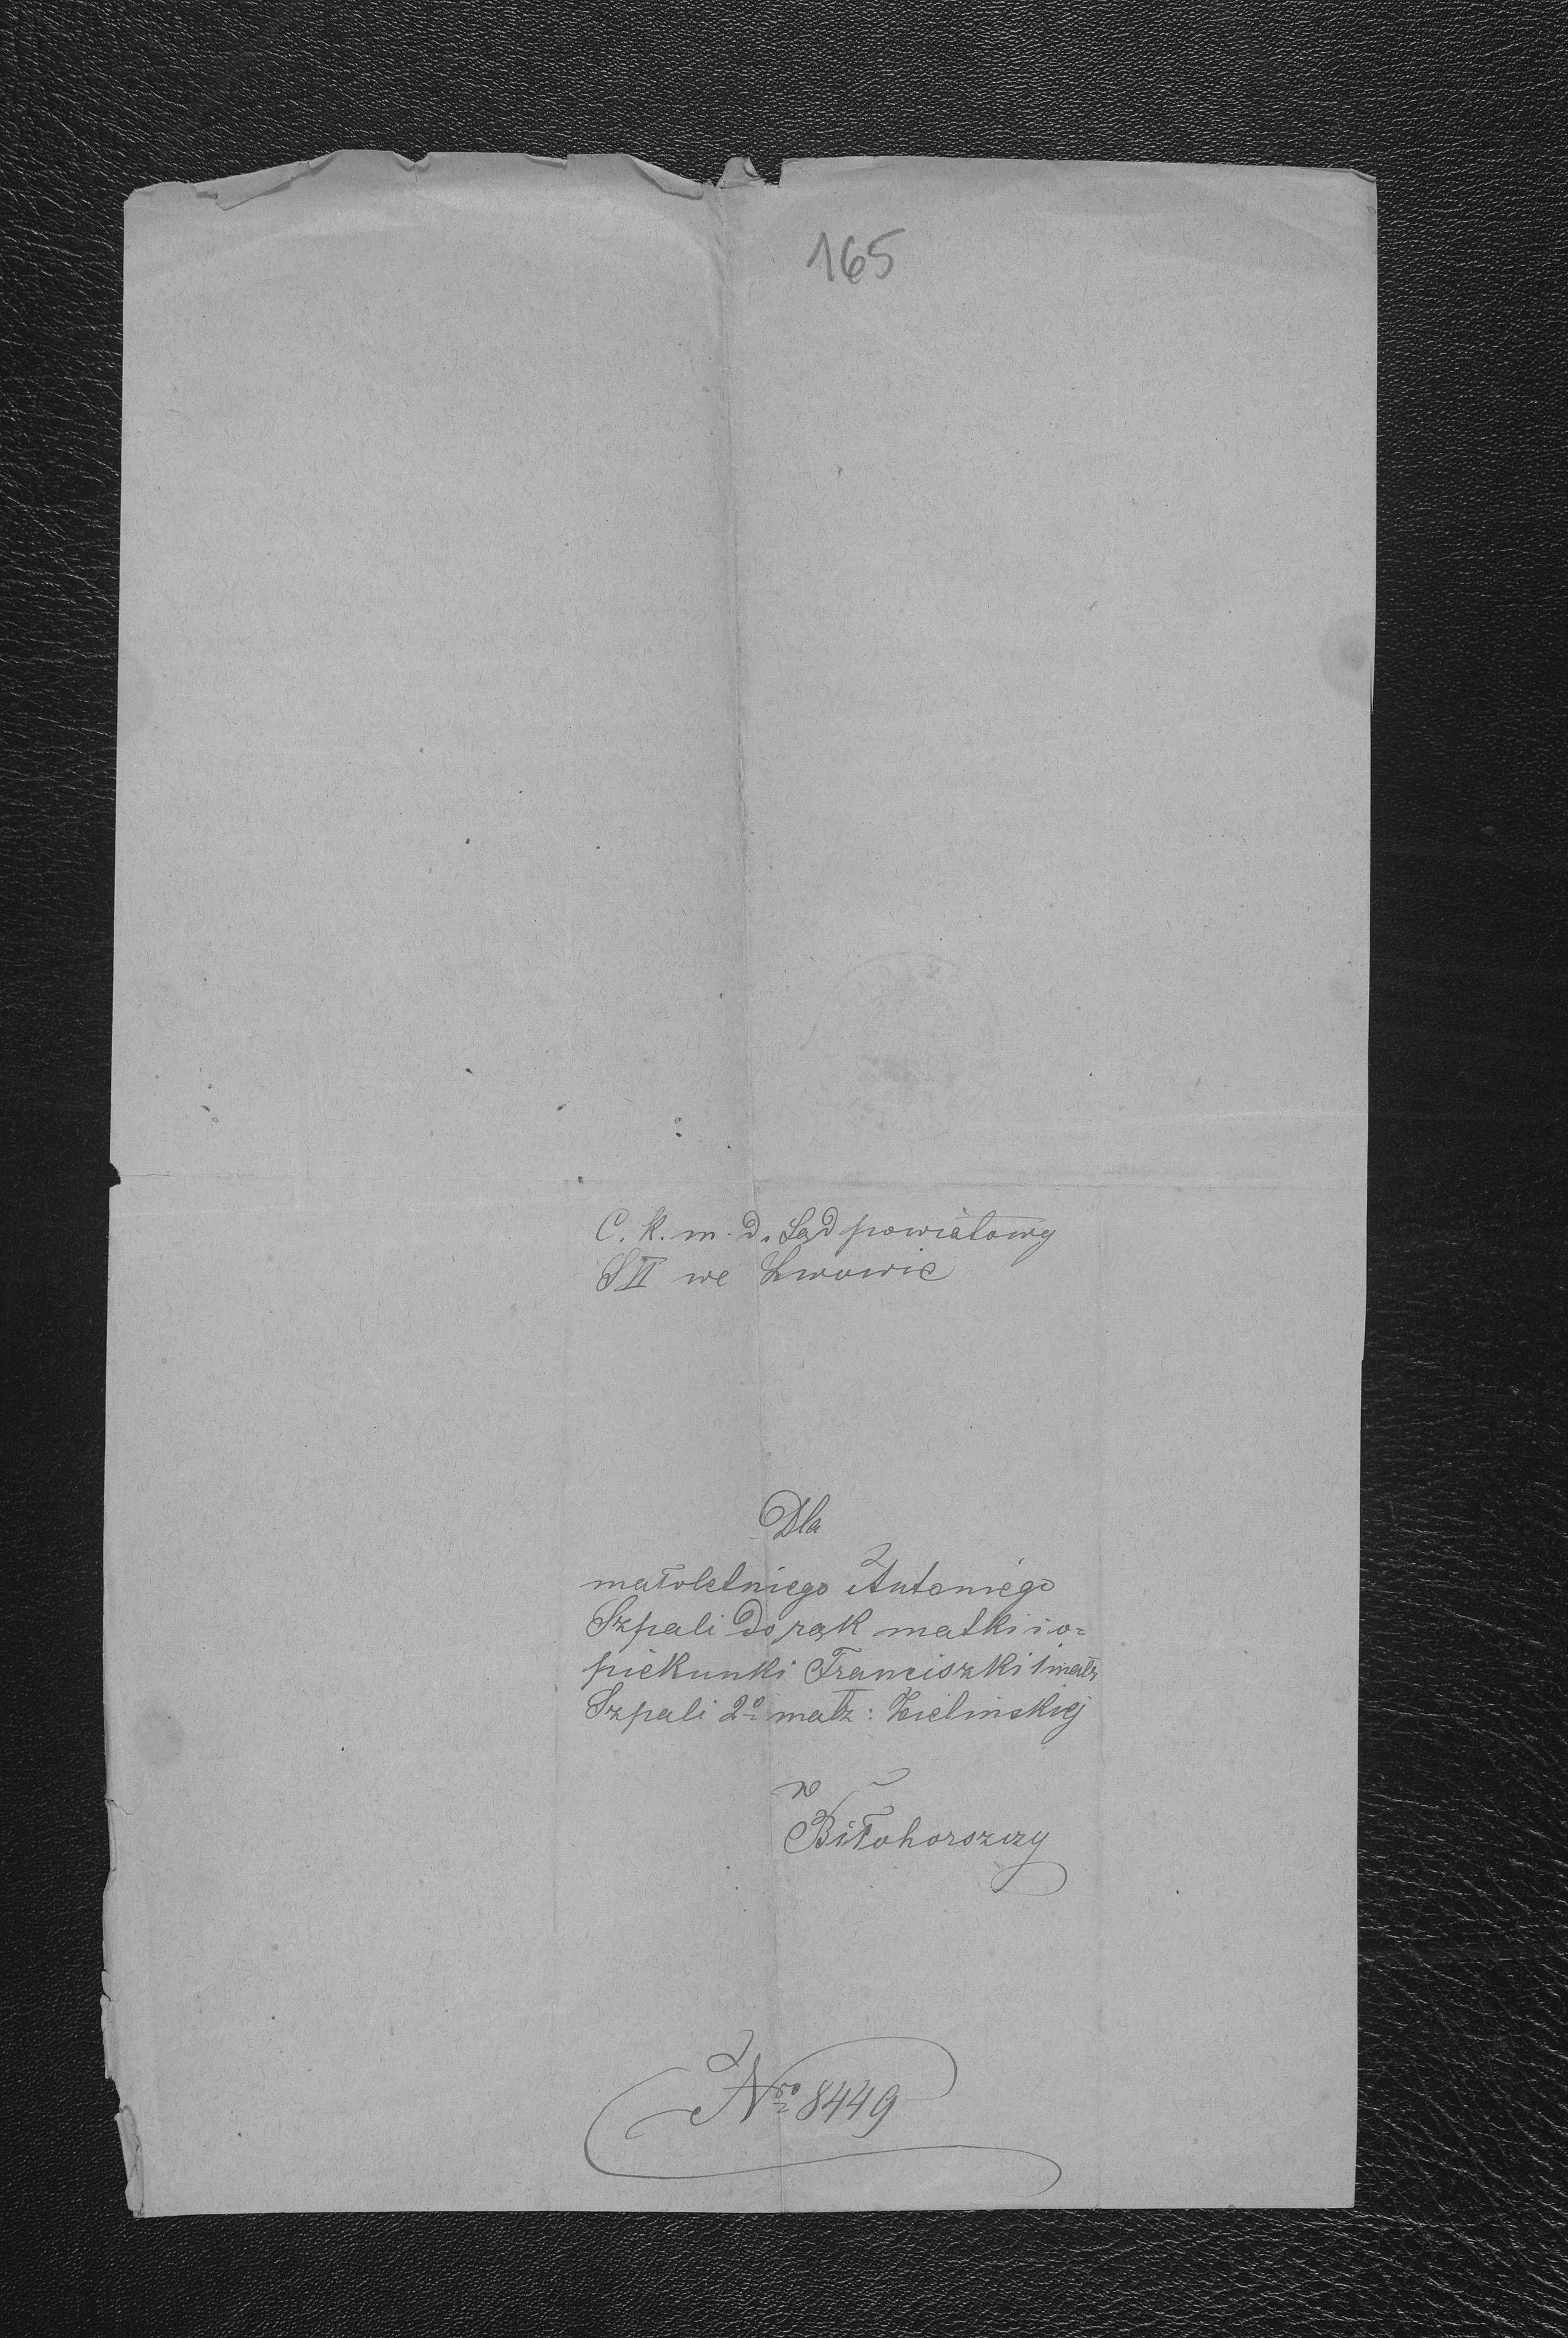 165
C. k. m. d. Sąd powiatowy
S II we Lwowie
Dla
małoletniego Antoniego
Szpali do rąk matki i o=
piekunki Franciszki 1 małż
Szpali 2º małż: Zielińskiej
w
Biłohorszczy
Nro 8449